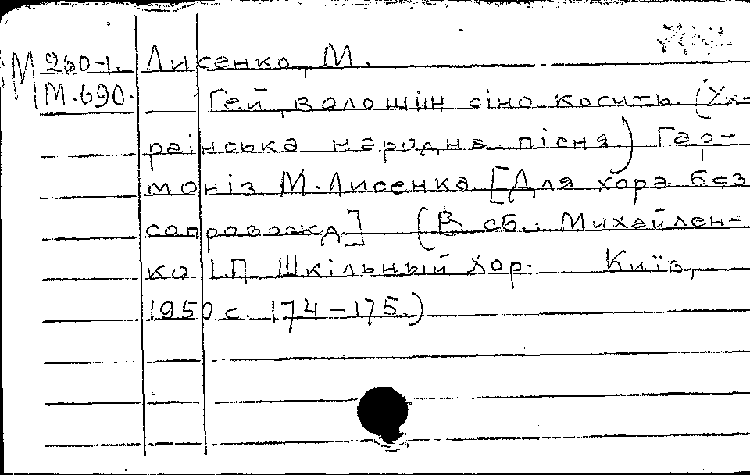 М 260-1. Лисенко, М.
М.690. Гей, волошин сіно косить. (Ук-
раїнська народна пісня) Гар-
моніз М. Лисенка [Для хора без
сопровожд.] (В сб.: Михайлен-
ка І.П. Шкільный хор. Київ,
1950 с. 174-175.)